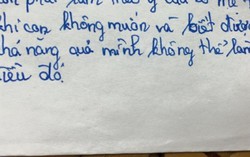 phải làm theo ý của bố mẹ
khi con không muốn và biết được
khả năng của mình không thể làm
điều đó.